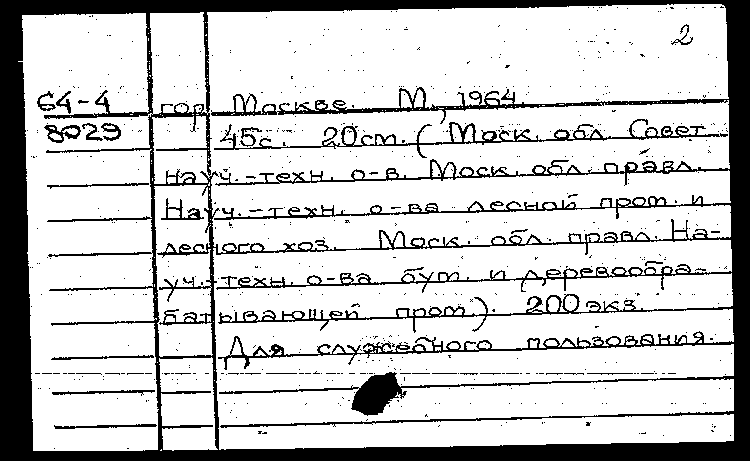 2
64-4 гор. Москве. М., 1964.
8029 45с. 20см. (Моск. обл. Совет
науч.-техн. о-в. Моск. обл. правл.
Науч.-техн. о-ва лесной пром. и
лесного хоз. Моск. обл. правл. На-
уч.-техн. о-ва бум. и деревообра-
батывающей пром.). 200 экз.
Для служебного пользования.